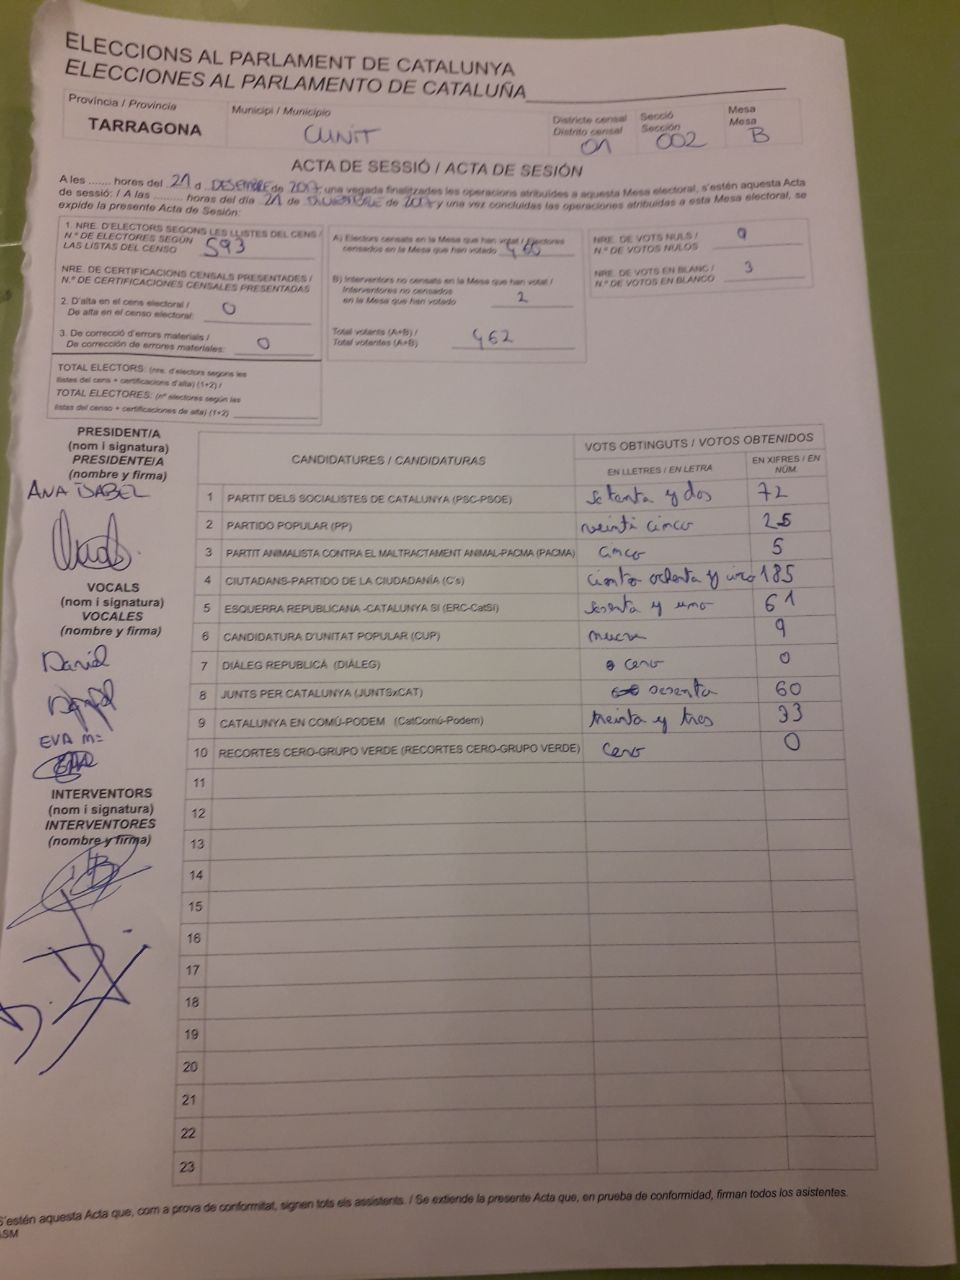 ELECCIONS AL PARLAMENT DE CATALUNYA
ELECCIONES AL PARLAMENTO DE CATALUÑA
Província / Provincia
TARRAGONA
Municipi / Municipio
CUNIT
Districte censal
Distrito censal
01
Secció
Sección
002
Mesa
Mesa
B
ACTA DE SESSIÓ / ACTA DE SESIÓN
A les ....... hores del 21 d DESEMBRE de 2017, una vegada finalitzades les operacions atribuïdes a aquesta Mesa electoral, s'estén aquesta Acta
de sessió: / A las ......... horas del día 21 de DICIEMBRE de 2017 y una vez concluidas las operaciones atribuidas a esta Mesa electoral, se
expide la presente Acta de Sesión:
1. NRE. D'ELECTORS SEGONS LES LLISTES DEL CENS /
N.º DE ELECTORES SEGÚN
LAS LISTAS DEL CENSO 593
NRE. DE CERTIFICACIONS CENSALS PRESENTADES /
N.º DE CERTIFICACIONES CENSALES PRESENTADAS
2. D'alta en el cens electoral /
De alta en el censo electoral: 0
3. De correcció d'errors materials /
De corrección de errores materiales: 0
TOTAL ELECTORS: (nre. d'electors segons les
llistes del cens + certificacions d'alta) (1+2) /
TOTAL ELECTORES: (nº electores según las
listas del censo + certificaciones de alta) (1+2)
A) Electors censats en la Mesa que han votat / Electores
censados en la Mesa que han votado 460
B) Interventors no censats en la Mesa que han votat /
Interventores no censados
en la Mesa que han votado 2
Total votants (A+B) /
Total votantes (A+B) 462
NRE. DE VOTS NULS /
N.º DE VOTOS NULOS 9
NRE. DE VOTS EN BLANC /
N.º DE VOTOS EN BLANCO 3
PRESIDENT/A
(nom i signatura)
PRESIDENTE/A
(nombre y firma)
ANA ISABEL
VOCALS
(nom i signatura)
VOCALES
(nombre y firma)
David
EVA Mª
INTERVENTORS
(nom i signatura)
INTERVENTORES
(nombre y firma)
CANDIDATURES / CANDIDATURAS
VOTS OBTINGUTS / VOTOS OBTENIDOS
EN LLETRES / EN LETRA
EN XIFRES / EN NÚM.
1 PARTIT DELS SOCIALISTES DE CATALUNYA (PSC-PSOE) setenta y dos 72
2 PARTIDO POPULAR (PP) veinti cinco 25
3 PARTIT ANIMALISTA CONTRA EL MALTRACTAMENT ANIMAL-PACMA (PACMA) cinco 5
4 CIUTADANS-PARTIDO DE LA CIUDADANÍA (C's) ciento ochenta y cinco 185
5 ESQUERRA REPUBLICANA -CATALUNYA SÍ (ERC-CatSí) sesenta y uno 61
6 CANDIDATURA D'UNITAT POPULAR (CUP) nueve 9
7 DIÀLEG REPUBLICÀ (DIÀLEG) cero 0
8 JUNTS PER CATALUNYA (JUNTSxCAT) sesenta 60
9 CATALUNYA EN COMÚ-PODEM (CatComú-Podem) treinta y tres 33
10 RECORTES CERO-GRUPO VERDE (RECORTES CERO-GRUPO VERDE) cero 0
11
12
13
14
15
16
17
18
19
20
21
22
23
S'estén aquesta Acta que, com a prova de conformitat, signen tots els assistents. / Se extiende la presente Acta que, en prueba de conformidad, firman todos los asistentes.